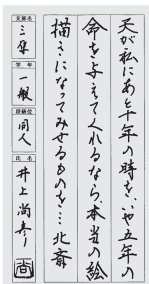 天が私にあと十年の時を、いや五年の
命を与えてくれるなら、本当の絵
描きになってみせるものを…北斎
支部名
三原
学年
一般
段級位
同人
氏名
井上尚彦